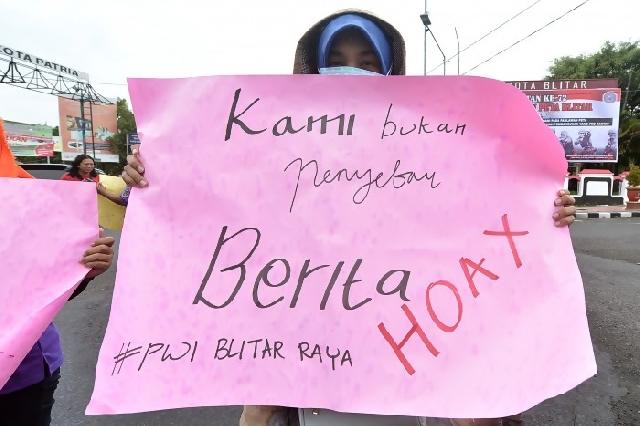 KOTA PATRIA
KOTA BLITAR
Kami bukan
Penyebar
Berita
HOAX
#PWI BLITAR RAYA